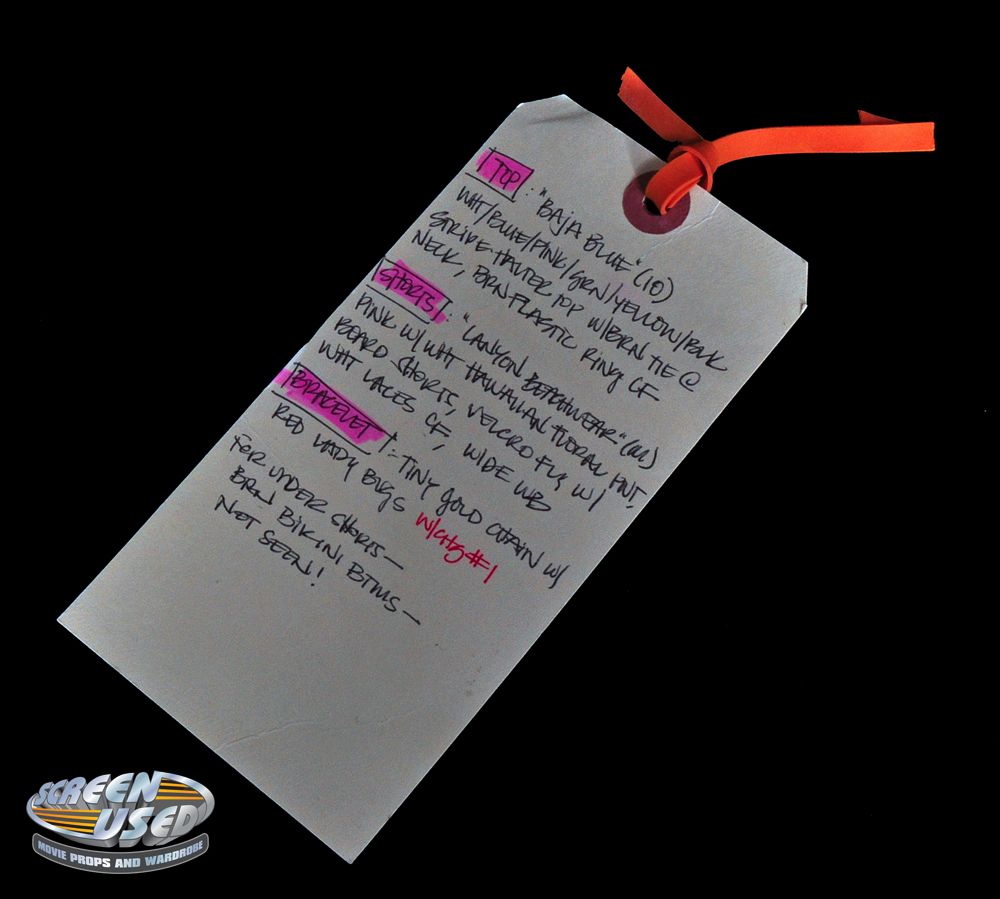 TOP: "BAJA BLUE" (10)
WHT/BLUE/PINK/GRN/YELLOW/BLK
STRIPE HALTER TOP W/BRN TIE @
NECK, BRN PLASTIC RING CF
SHORTS: "CANYON BEACHWEAR" (M)
PINK W/ WHT HAWAIIAN FLORAL PNT.
BOARD SHORTS, VELCRO FLY W/
WHT LACES CF, WIDE WB
BRACELET: -TINY GOLD CHAIN W/
RED LADY BUGS W/CHG #1
FOR UNDER SHORTS—
BRN BIKINI BTMS—
NOT SEEN!
SCREEN
USED
MOVIE PROPS AND WARDROBE